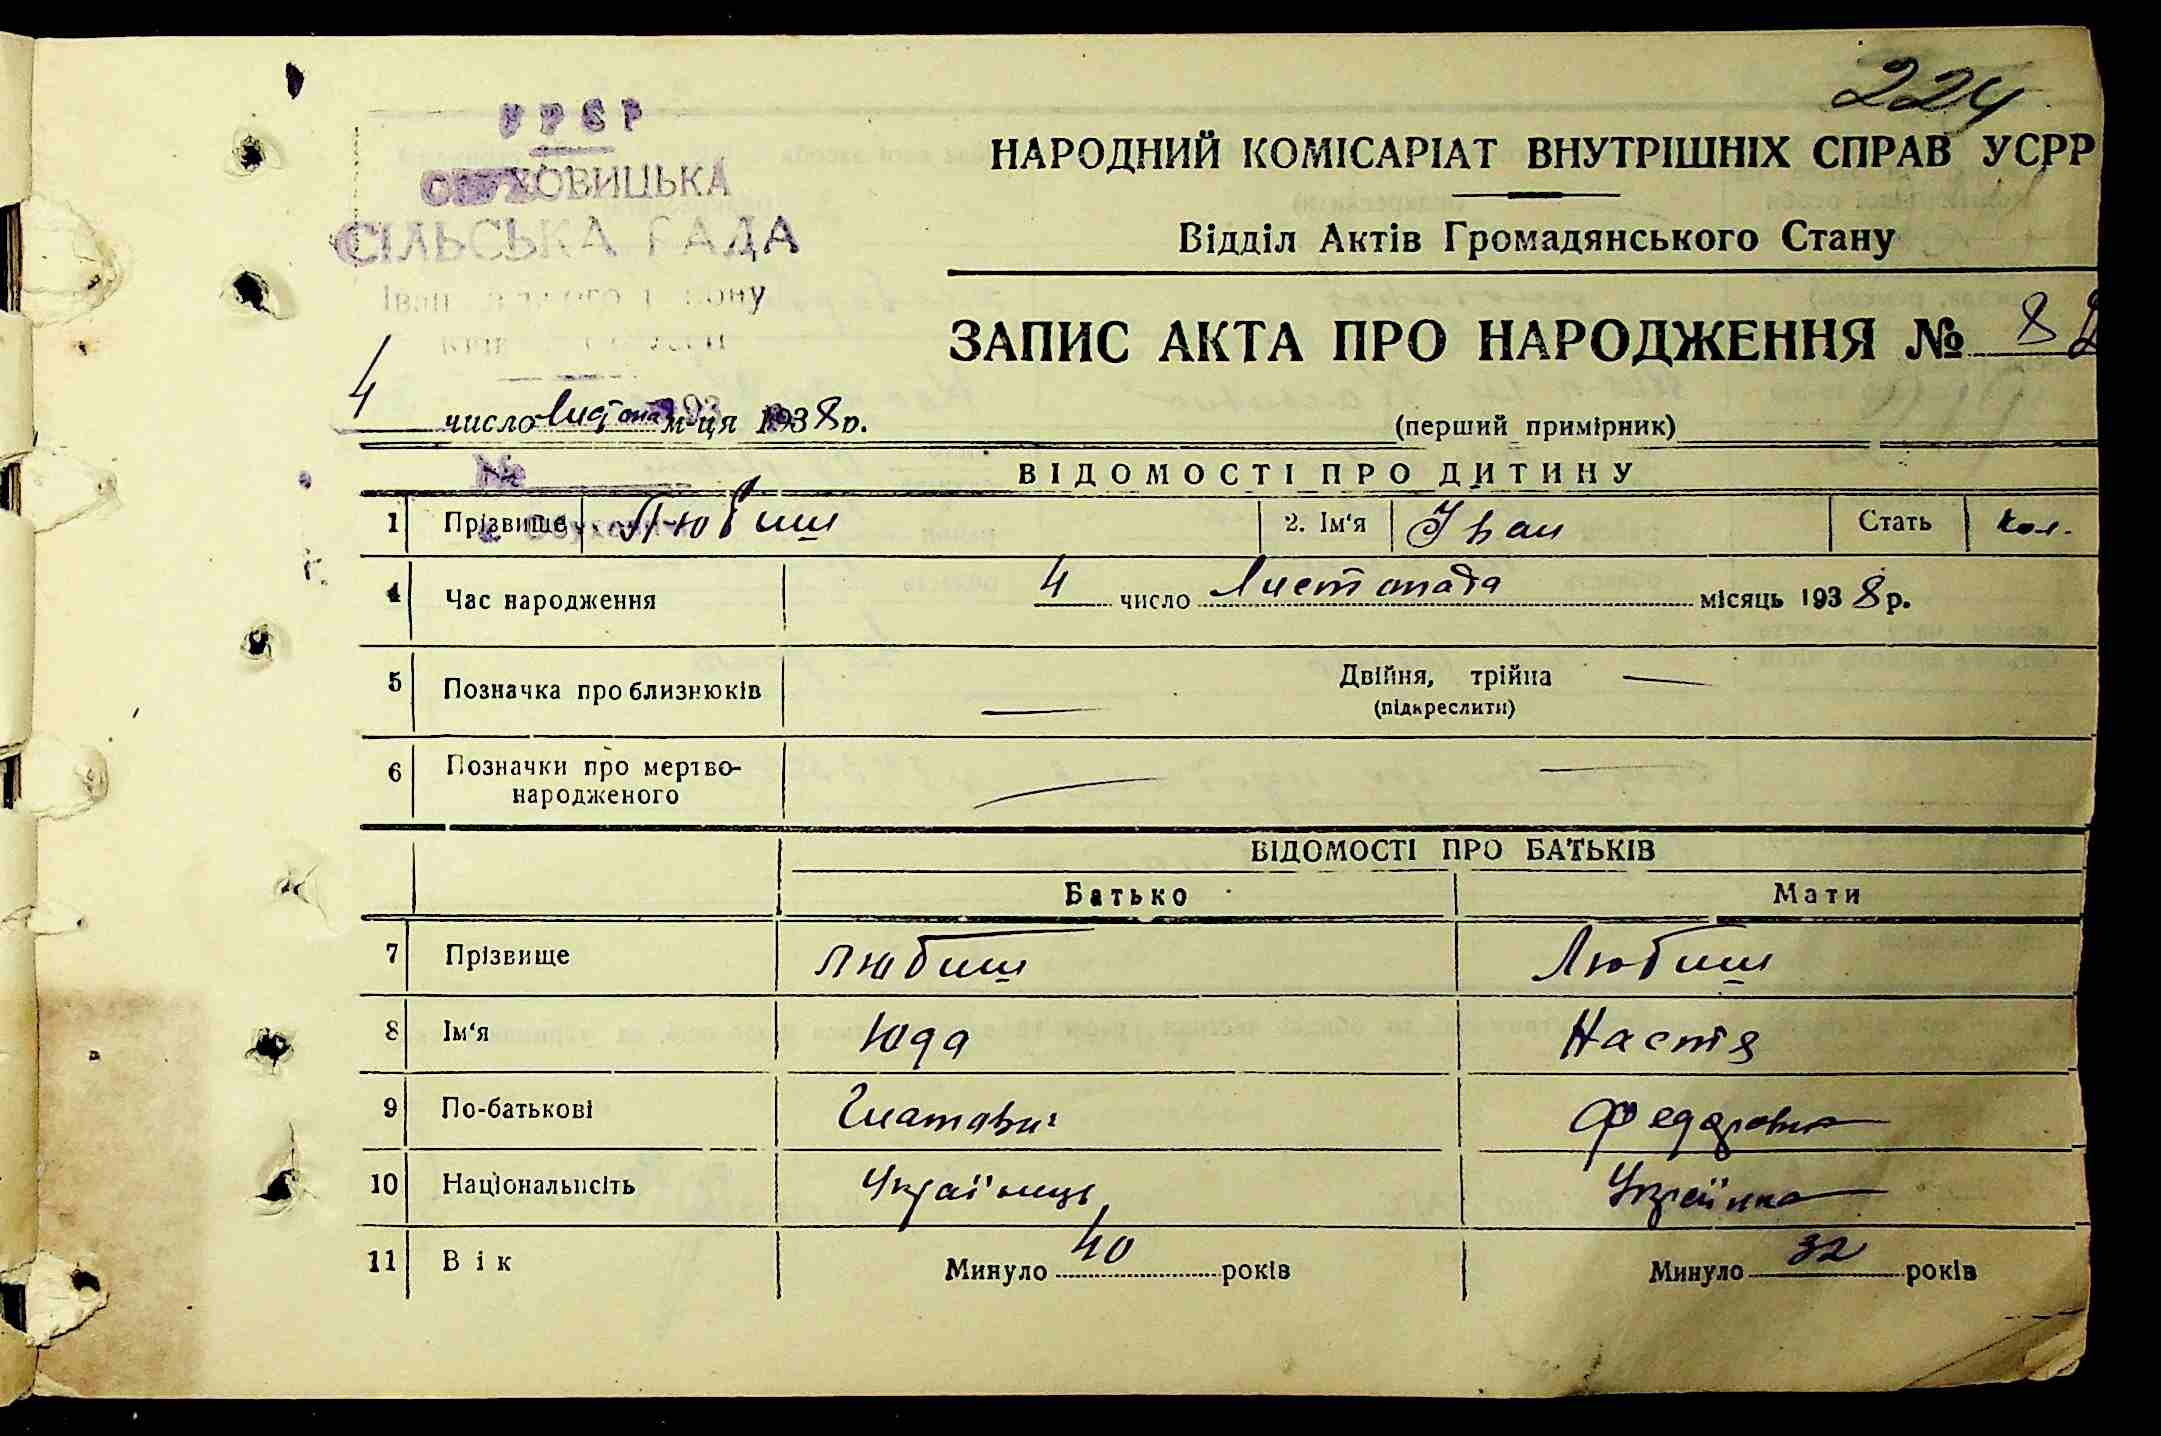 224
УРСР
ОБУХОВИЦЬКА
СІЛЬСЬКА РАДА
НАРОДНИЙ КОМІСАРІАТ ВНУТРІШНІХ СПРАВ УСРР
Відділ Актів Громадянського Стану
ЗАПИС АКТА ПРО НАРОДЖЕННЯ № 82
4 число листопад м-ця 1938 р.
(перший примірник)
№
ВІДОМОСТІ ПРО ДИТИНУ
1 Прізвище Любиш 2. Ім‘я Іван Стать чол.
4 Час народження 4 число Листопада місяць 1938 р.
5 Позначка про близнюків — Двійня, трійна —
(підкреслити)
6 Позначки про мертво-
народженого — —
ВІДОМОСТІ ПРО БАТЬКІВ
Батько Мати
7 Прізвище Любиш Любиш
8 Ім‘я Юда Настя
9 По-батькові Федоровна
10 Національність Українець Українка
11 Вік Минуло 40 років Минуло 32 років